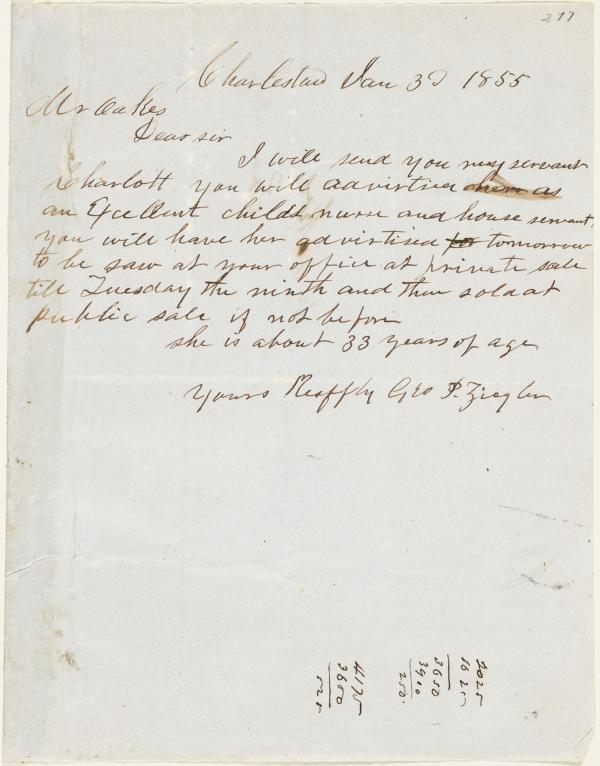 217
Charlestown Jan 3d 1855
Mr Oakes
Dear sir
I will send you my servant
Charlott you will advirtised them as
an Excellent childs nurse and house servant,
you will have her advirtised for tomorrow
to be saw at your office at private sale
till Tuesday the ninth and then sold at
public sale if not before
she is about 33 years of age
Yours Respfly Geo P. Ziegler
2025
1625
3650
3900
250.
4175
3650
525